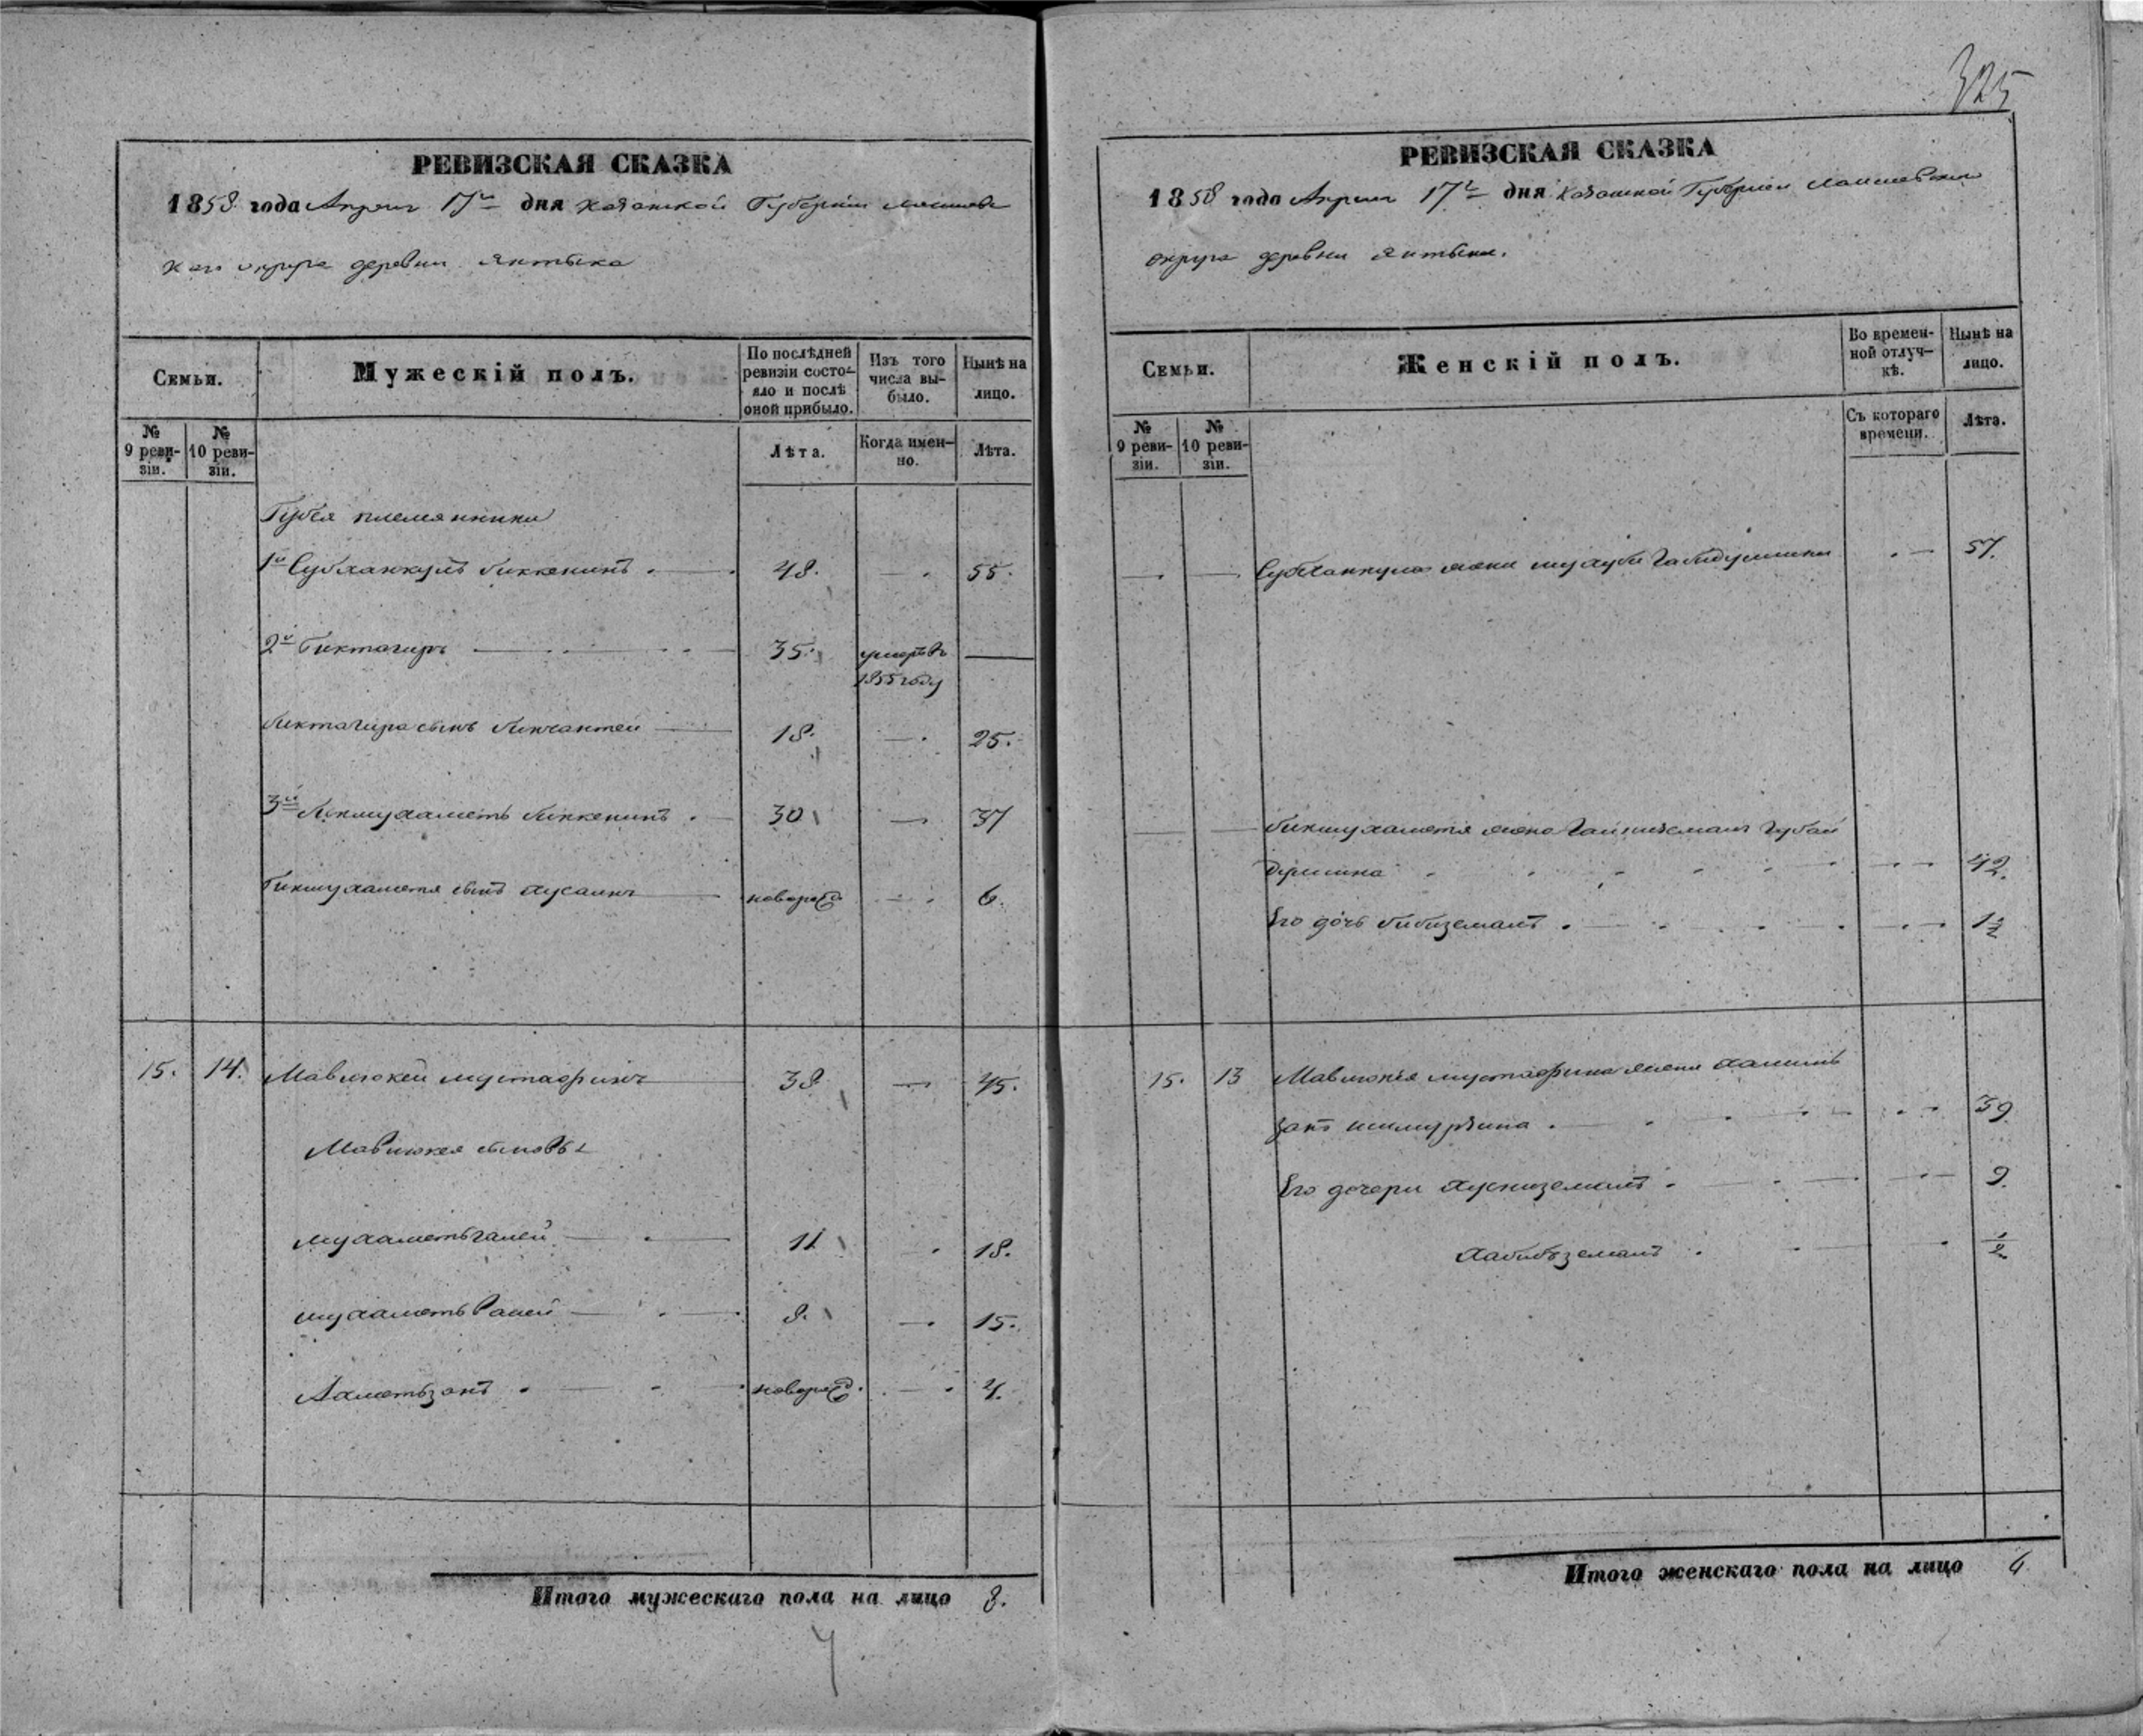 325
РЕВИЗСКАЯ СКАЗКА
1858 года Апреля 17го дня Казанской Губернии Лаишевс
каго округа деревни Янтыка
Семьи.
Мужескій полъ.
По послѣдней ревизіи состояло и послѣ оной прибыло.
Изъ того числа выбыло.
Нынѣ на лицо.
№ 9 ревизіи.
№ 10 ревизіи.
Лѣта.
Когда именно.
Лѣта.
Губея племянники
1й Субханкулъ Биккенинъ 48. 55.
2й Биктагиръ 35. умеръ въ 1855 году
Биктагира сынъ 18. 25.
3й Бикмухаметь Биккенинъ 30 37
Бикмухаметя сынъ Хусаинъ новорожд 6.
15. 14. Мавлюкей Мустафинъ 38 45.
Мавлюкея сыновья
Мухаметьгалей 11 18.
Мухаметьвалей 8. 15.
Ахметьзянъ новорожд. 4.
Итого мужескаго пола на лицо 8.
РЕВИЗСКАЯ СКАЗКА
1858 года Апреля 17го дня Казанской Губернии Лаишевскаго
округа деревни Янтыка.
Семьи.
Женскій полъ.
Во временной отлучкѣ.
Нынѣ на лицо.
№ 9 ревизіи.
№ 10 ревизіи.
Съ котораго времени.
Лѣта.
Субханкула жена Габидуллина 57.
Бикмухаметя жена Губай
дуллина 42.
Его дочь Бибиземалъ 1½
15. 13 Мавлюкея Мустафина жена
39
Его дочери Хусниземалъ 9.
Хабибъземалъ ½
Итого женскаго пола на лицо 6